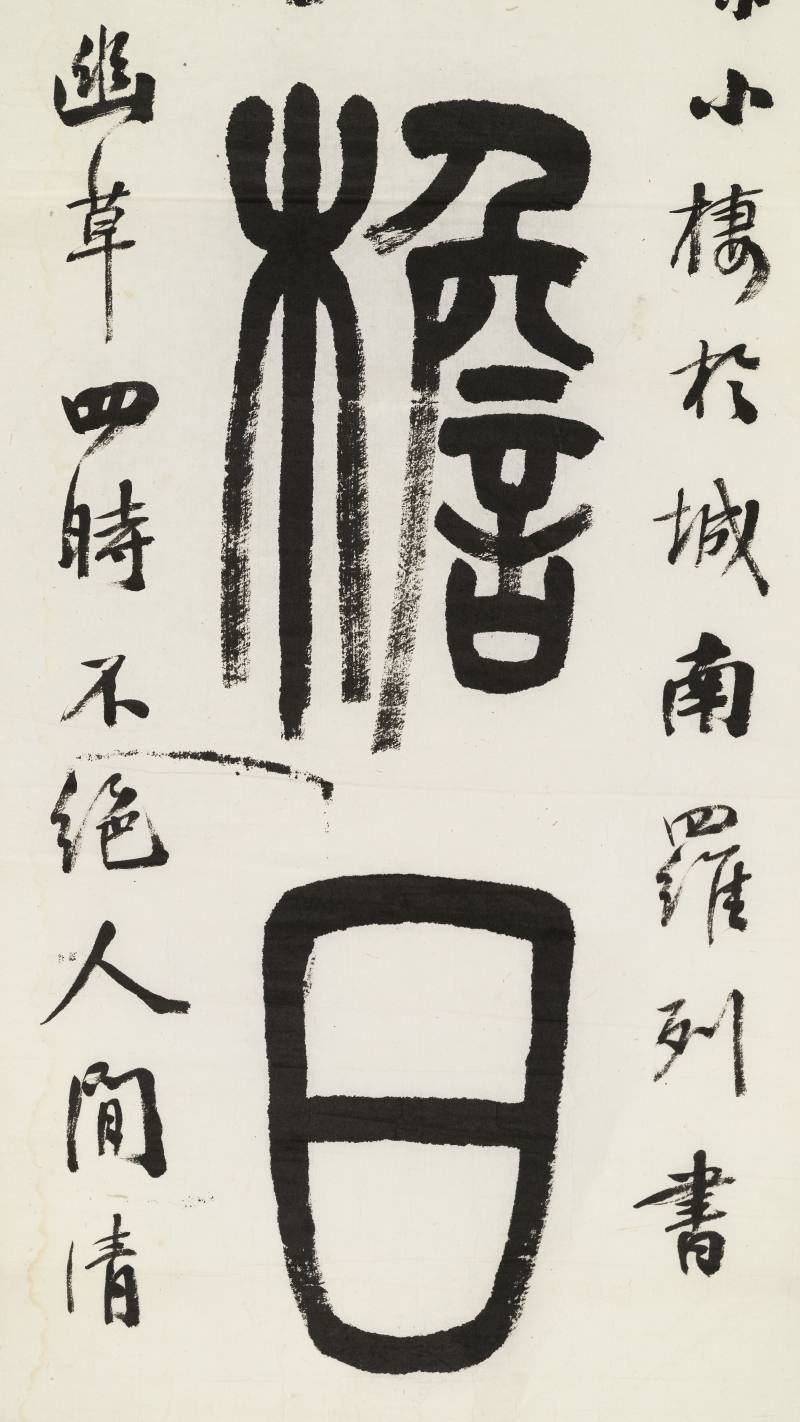 小棲於城南羅列書
檐日
幽草四時不絕人間清